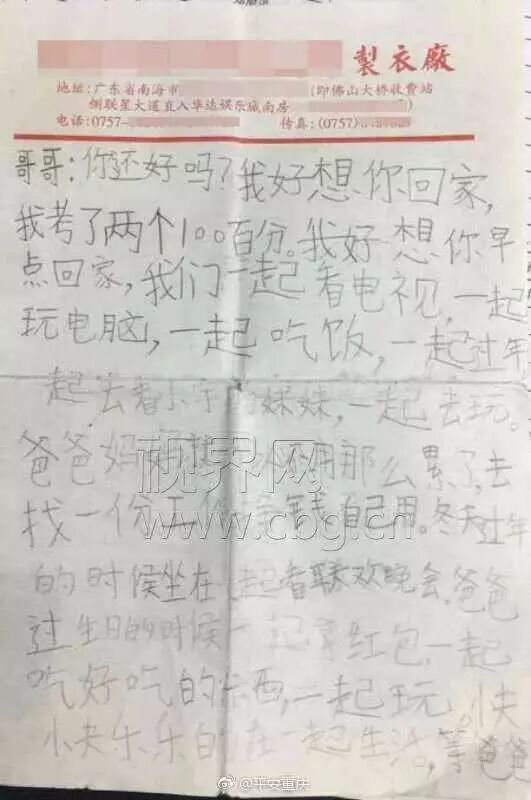 製衣廠
地址:广东省南海市 (即佛山大桥收费站
侧联星大道直入华达娱乐城南房 )
电话:0757- 传真:(0757)
哥哥:你还好吗?我好想你回家,
我考了两个100百分。我好想你早
点回家,我们一起看电视,一起
玩电脑,一起吃饭,一起过年,
起去看小宇的妹妹,一起去玩。
爸爸妈妈 不用那么累了,去
找一份工作 钱自己用。冬天过年
的时候坐在一起看联欢晚会,爸爸
过生日的时候一起拿红包,一起
吃好吃的东西,一起玩。快
快乐乐的在一起生活,等爸爸
视界网
www.cbg.cn
@平安重庆